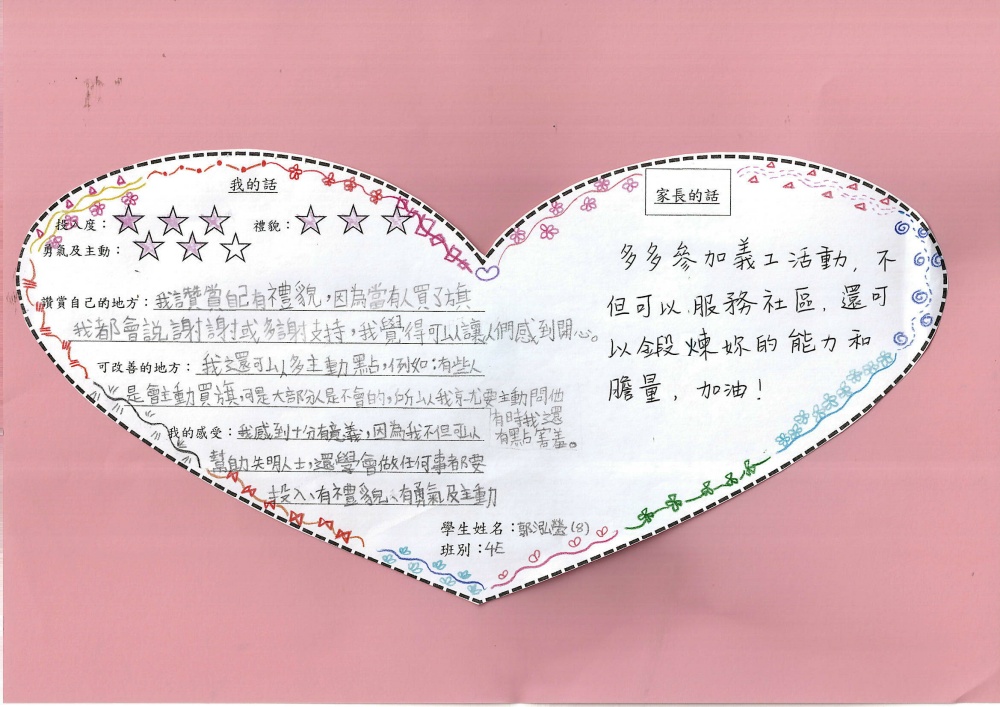 我的話
投入度：☆☆☆ 禮貌：☆☆☆
勇氣及主動：☆☆☆
讚賞自己的地方：我讚賞自己有禮貌，因為當有人買了旗
我都會説謝謝或多謝支持，我覺得可以讓人們感到開心。
可改善的地方：我還可以多主動點，例如：有些人
是會主動買旗，可是大部分人是不會的，所以我就要主動問他
有時我還
有點害羞。
我的感受：我感到十分有意義，因為我不但可以
幫助失明人士，還學會做任何事都要
投入、有禮貌、有勇氣及主動
學生姓名：郭泓瑩(8)
班別：4E
家長的話
多多參加義工活動，不
但可以服務社區，還可
以鍛煉妳的能力和
膽量，加油！